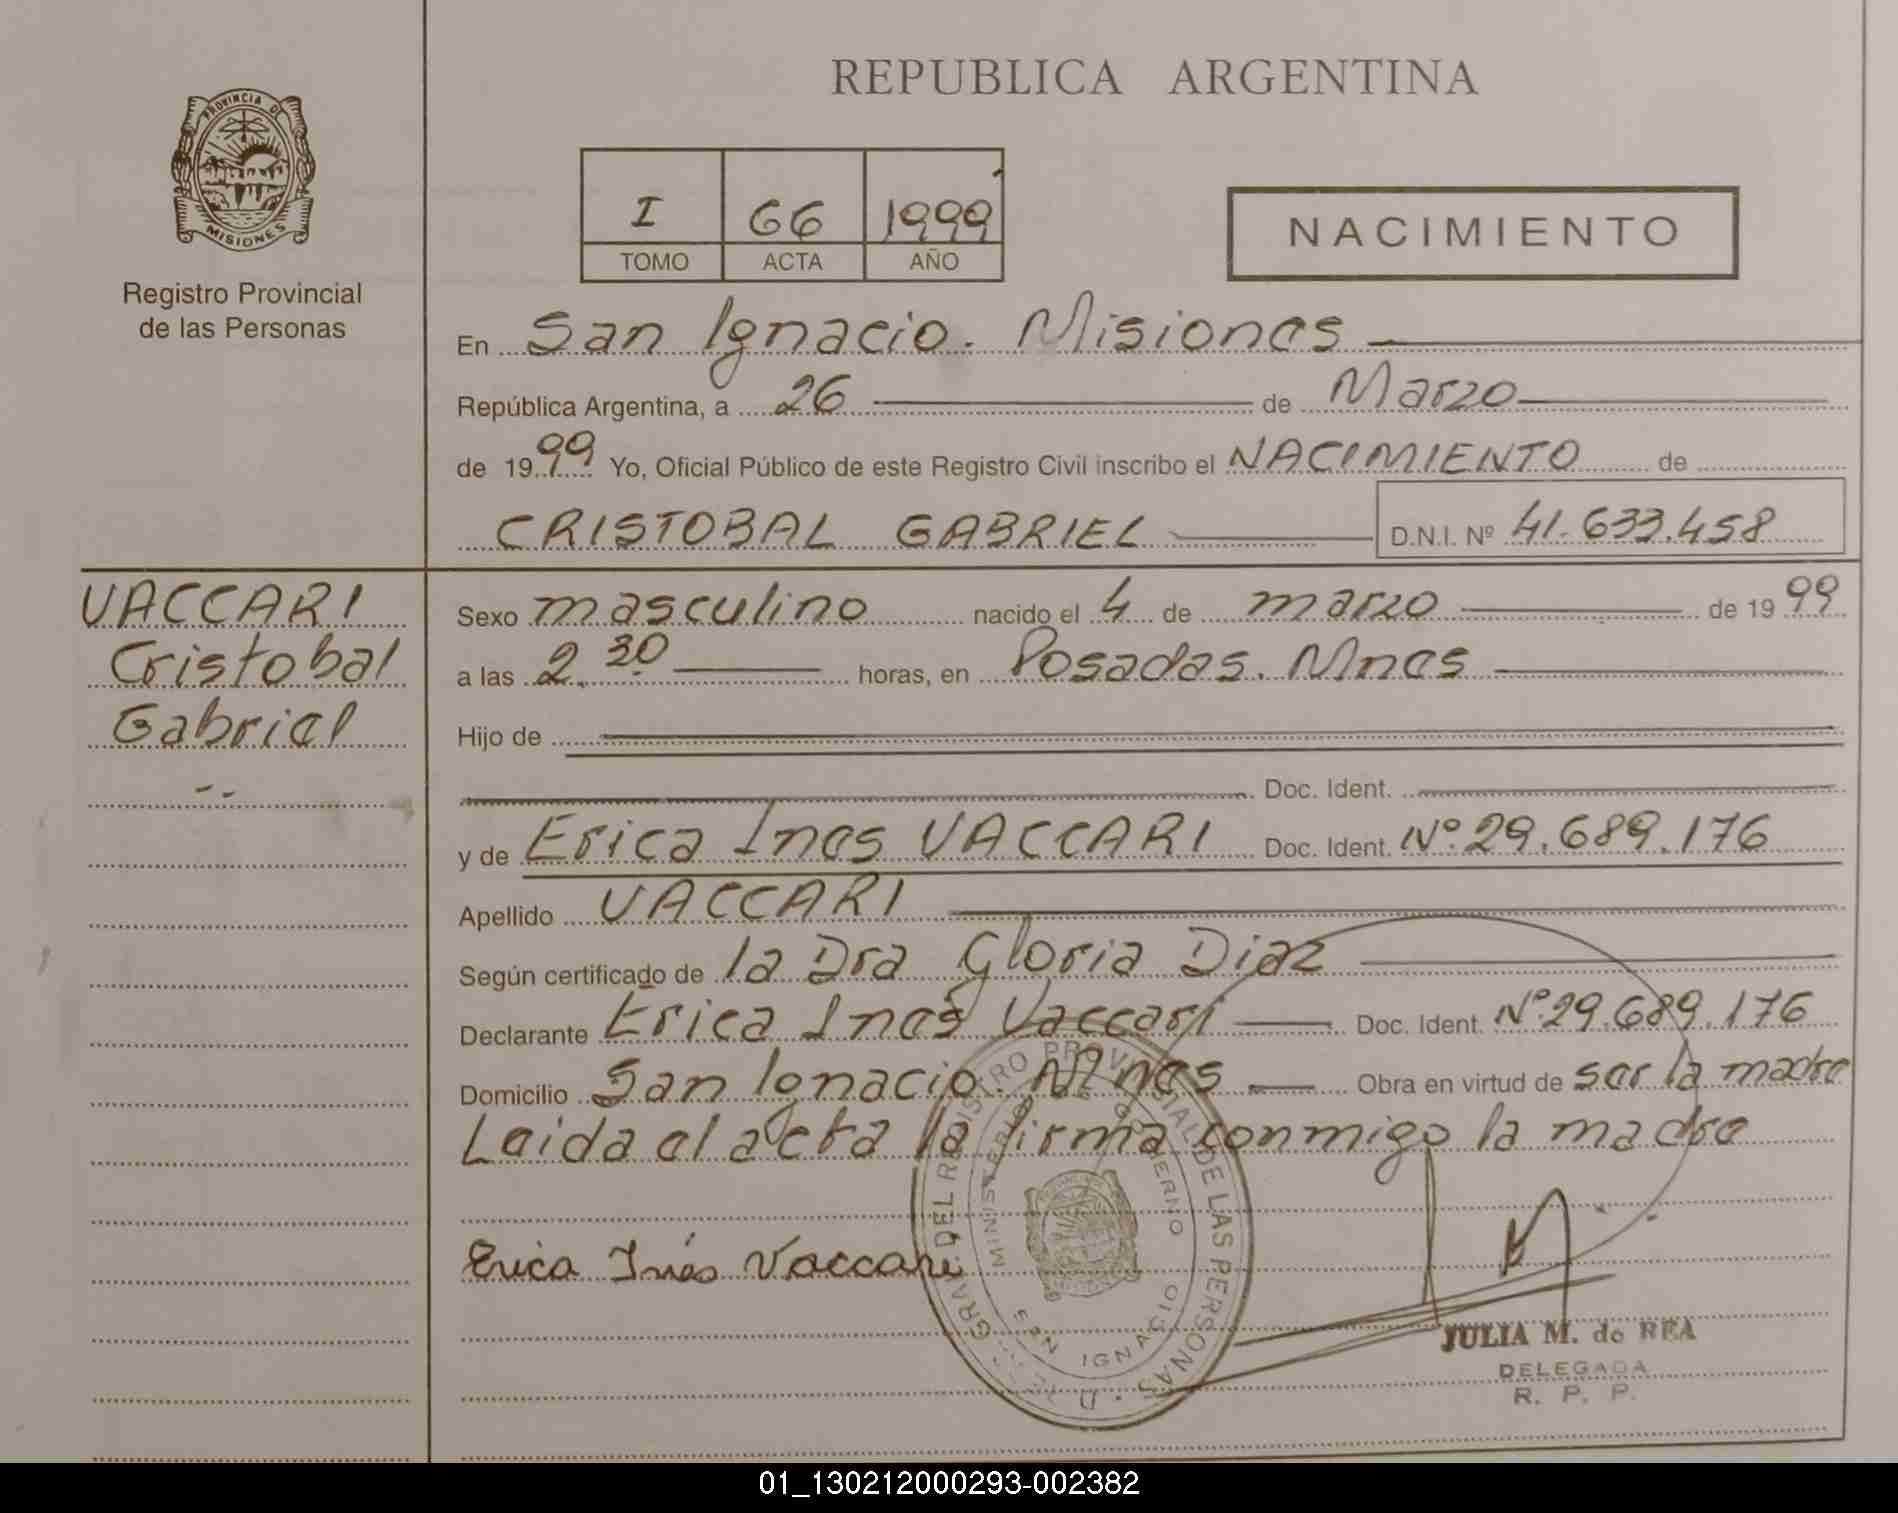 REPUBLICA ARGENTINA
PROVINCIA DE
MISIONES
Registro Provincial
de las Personas
I 66 1999
TOMO ACTA AÑO
NACIMIENTO
En San Ignacio. Misiones
República Argentina, a 26 de Marzo
de 1999 Yo, Oficial Público de este Registro Civil inscribo el NACIMIENTO de
CRISTOBAL GABRIEL D.N.I. Nº 41.633.458
VACCARI
Cristobal
Gabriel
Sexo masculino nacido el 4 de marzo de 1999
a las 2.30 horas, en Posadas. Mnes
Hijo de
Doc. Ident.
y de Erica Ines VACCARI Doc. Ident. Nº 29.689.176
Apellido VACCARI
Según certificado de la Dra Gloria Diaz
Declarante Erica Ines Vaccari Doc. Ident. Nº 29.689.176
Domicilio San Ignacio. Mnes Obra en virtud de ser la madre
Leida el acta la firma conmigo la madre
Erica Inés Vaccari
GRAL. DEL REGISTRO PROVINCIAL DE LAS PERSONAS
MINISTERIO DE GOBIERNO
SAN IGNACIO
JULIA M. de REA
DELEGADA
R. P. P.
01_130212000293-002382